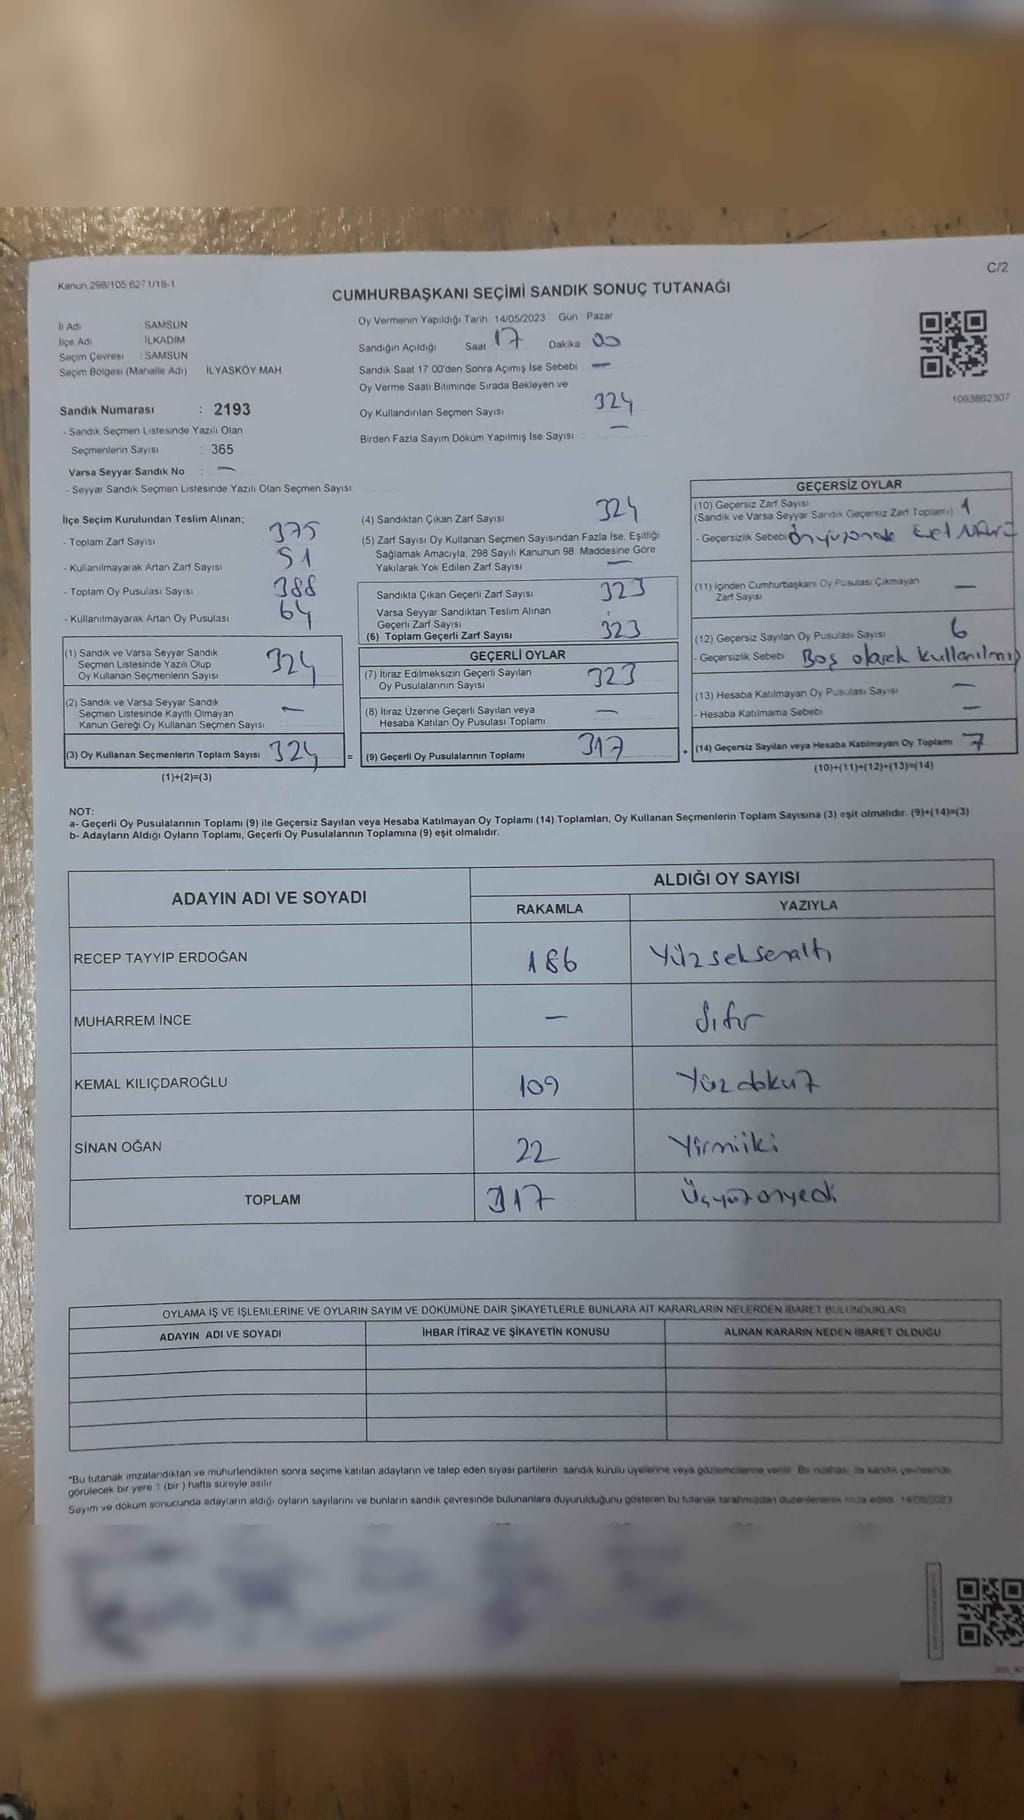 Kanun 298/105 627 1/18-1
C/2
CUMHURBAŞKANI SEÇİMİ SANDIK SONUÇ TUTANAĞI
İl Adı SAMSUN
İlçe Adı İLKADIM
Seçim Çevresi : SAMSUN
Seçim Bölgesi (Mahalle Adı) İLYASKÖY MAH
Sandık Numarası : 2193
- Sandık Seçmen Listesinde Yazılı Olan
Seçmenlerin Sayısı : 365
Varsa Seyyar Sandık No : —
- Seyyar Sandık Seçmen Listesinde Yazılı Olan Seçmen Sayısı
Oy Vermenin Yapıldığı Tarih 14/05/2023 Gün Pazar
Sandığın Açıldığı Saat 17 Dakika 00
Sandık Saat 17 00'den Sonra Açımış İse Sebebi —
Oy Verme Saati Bitiminde Sırada Bekleyen ve
Oy Kullandırılan Seçmen Sayısı 324
Birden Fazla Sayım Döküm Yapılmış İse Sayısı —
1093862307
İlçe Seçim Kurulundan Teslim Alınan;
- Toplam Zarf Sayısı 375
- Kullanılmayarak Artan Zarf Sayısı 51
- Toplam Oy Pusulası Sayısı 388
- Kullanılmayarak Artan Oy Pusulası 64
(1) Sandık ve Varsa Seyyar Sandık
Seçmen Listesinde Yazılı Olup
Oy Kullanan Seçmenlerin Sayısı 324
(2) Sandık ve Varsa Seyyar Sandık
Seçmen Listesinde Kayıtlı Olmayan
Kanun Gereği Oy Kullanan Seçmen Sayısı —
(3) Oy Kullanan Seçmenlerin Toplam Sayısı 324 =
(1)+(2)=(3)
(4) Sandıktan Çıkan Zarf Sayısı 324
(5) Zarf Sayısı Oy Kullanan Seçmen Sayısından Fazla İse, Eşitliği
Sağlamak Amacıyla; 298 Sayılı Kanunun 98. Maddesine Göre
Yakılarak Yok Edilen Zarf Sayısı —
Sandıkta Çıkan Geçerli Zarf Sayısı 323
Varsa Seyyar Sandıktan Teslim Alınan
Geçerli Zarf Sayısı
(6) Toplam Geçerli Zarf Sayısı 323
GEÇERLİ OYLAR
(7) İtiraz Edilmeksizin Geçerli Sayılan
Oy Pusulalarının Sayısı 323
(8) İtiraz Üzerine Geçerli Sayılan veya
Hesaba Katılan Oy Pusulası Toplamı —
(9) Geçerli Oy Pusulalarının Toplamı 317 +
GEÇERSİZ OYLAR
(10) Geçersiz Zarf Sayısı
(Sandık ve Varsa Seyyar Sandık Geçersiz Zarf Toplamı) 1
- Geçersizlik Sebebi Önyüzünde Evet
(11) İçinden Cumhurbaşkanı Oy Pusulası Çıkmayan
Zarf Sayısı —
(12) Geçersiz Sayılan Oy Pusulası Sayısı 6
- Geçersizlik Sebebi Boş olarak kullanılmış
(13) Hesaba Katılmayan Oy Pusulası Sayısı —
- Hesaba Katılmama Sebebi —
(14) Geçersiz Sayılan veya Hesaba Katılmayan Oy Toplamı 7
(10)+(11)+(12)+(13)=(14)
NOT:
a- Geçerli Oy Pusulalarının Toplamı (9) ile Geçersiz Sayılan veya Hesaba Katılmayan Oy Toplamı (14) Toplamları, Oy Kullanan Seçmenlerin Toplam Sayısına (3) eşit olmalıdır. (9)+(14)=(3)
b- Adayların Aldığı Oyların Toplamı, Geçerli Oy Pusulalarının Toplamına (9) eşit olmalıdır.
ADAYIN ADI VE SOYADI ALDIĞI OY SAYISI
RAKAMLA YAZIYLA
RECEP TAYYİP ERDOĞAN 186 Yüzseksenaltı
MUHARREM İNCE — Sıfır
KEMAL KILIÇDAROĞLU 109 Yüzdokuz
SİNAN OĞAN 22 Yirmiiki
TOPLAM 317 Üçyüzonyedi
OYLAMA İŞ VE İŞLEMLERİNE VE OYLARIN SAYIM VE DÖKÜMÜNE DAİR ŞİKAYETLERLE BUNLARA AİT KARARLARIN NELERDEN İBARET BULUNDUKLARI
ADAYIN ADI VE SOYADI İHBAR İTİRAZ VE ŞİKAYETİN KONUSU ALINAN KARARIN NEDEN İBARET OLDUĞU
*Bu tutanak imzalandıktan ve mühürlendikten sonra seçime katılan adayların ve talep eden siyasi partilerin sandık kurulu üyelerine veya gözlemcilerine verilir. Bir nüshası da sandık çevresinde
görülecek bir yere 1 (bir ) hafta süreyle asılır
Sayım ve döküm sonucunda adayların aldığı oyların sayılarını ve bunların sandık çevresinde bulunanlara duyurulduğunu gösteren bu tutanak tarafımızdan düzenlenerek imza edildi. 14/05/2023